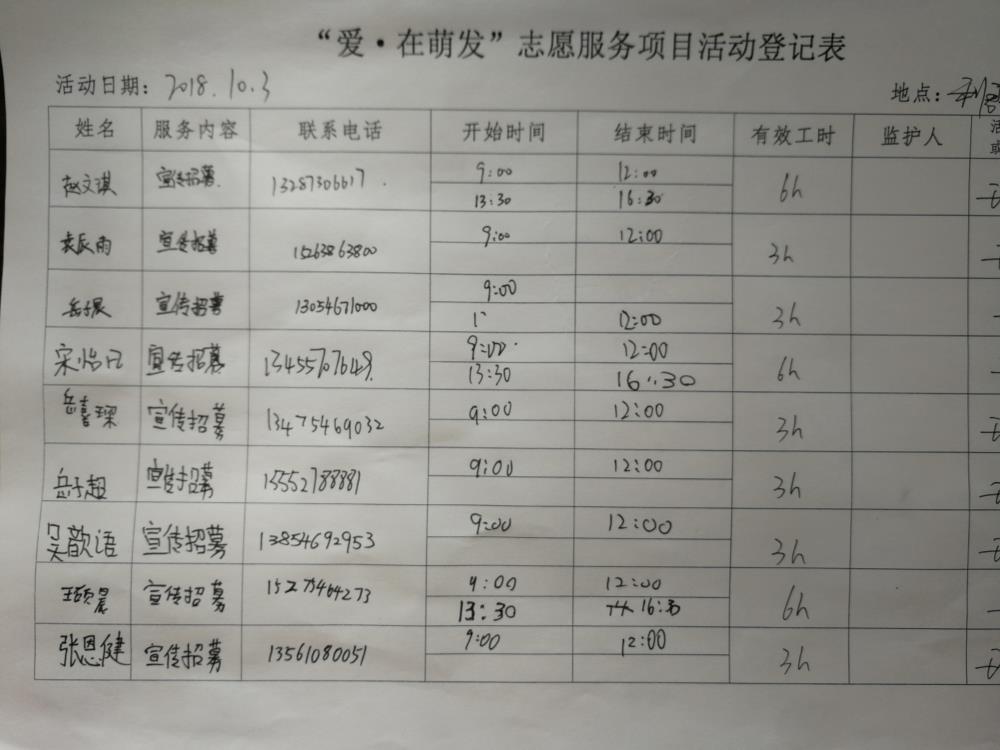 “爱·在萌发”志愿服务项目活动登记表
活动日期：2018.10.3 地点：
姓名 服务内容 联系电话 开始时间 结束时间 有效工时 监护人 活
赵文淇 宣传招募 13287306617 9:00 12:00 6h
13:30 16:30
袁辰雨 宣传招募 15263863800 9:00 12:00 3h
岳子晨 宣传招募 13054671000 9:00 3h
12:00
宋怡 宣传招募 13455707649 9:00 12:00 6h
13:30 16:30
岳喜琛 宣传招募 13475469032 9:00 12:00 3h
岳子超 宣传招募 15552788881 9:00 12:00 3h
吴歆语 宣传招募 13854692953 9:00 12:00 3h
王硕晨 宣传招募 15275464273 9:00 12:00 6h
13:30 16:30
张恩健 宣传招募 13561080051 9:00 12:00 3h